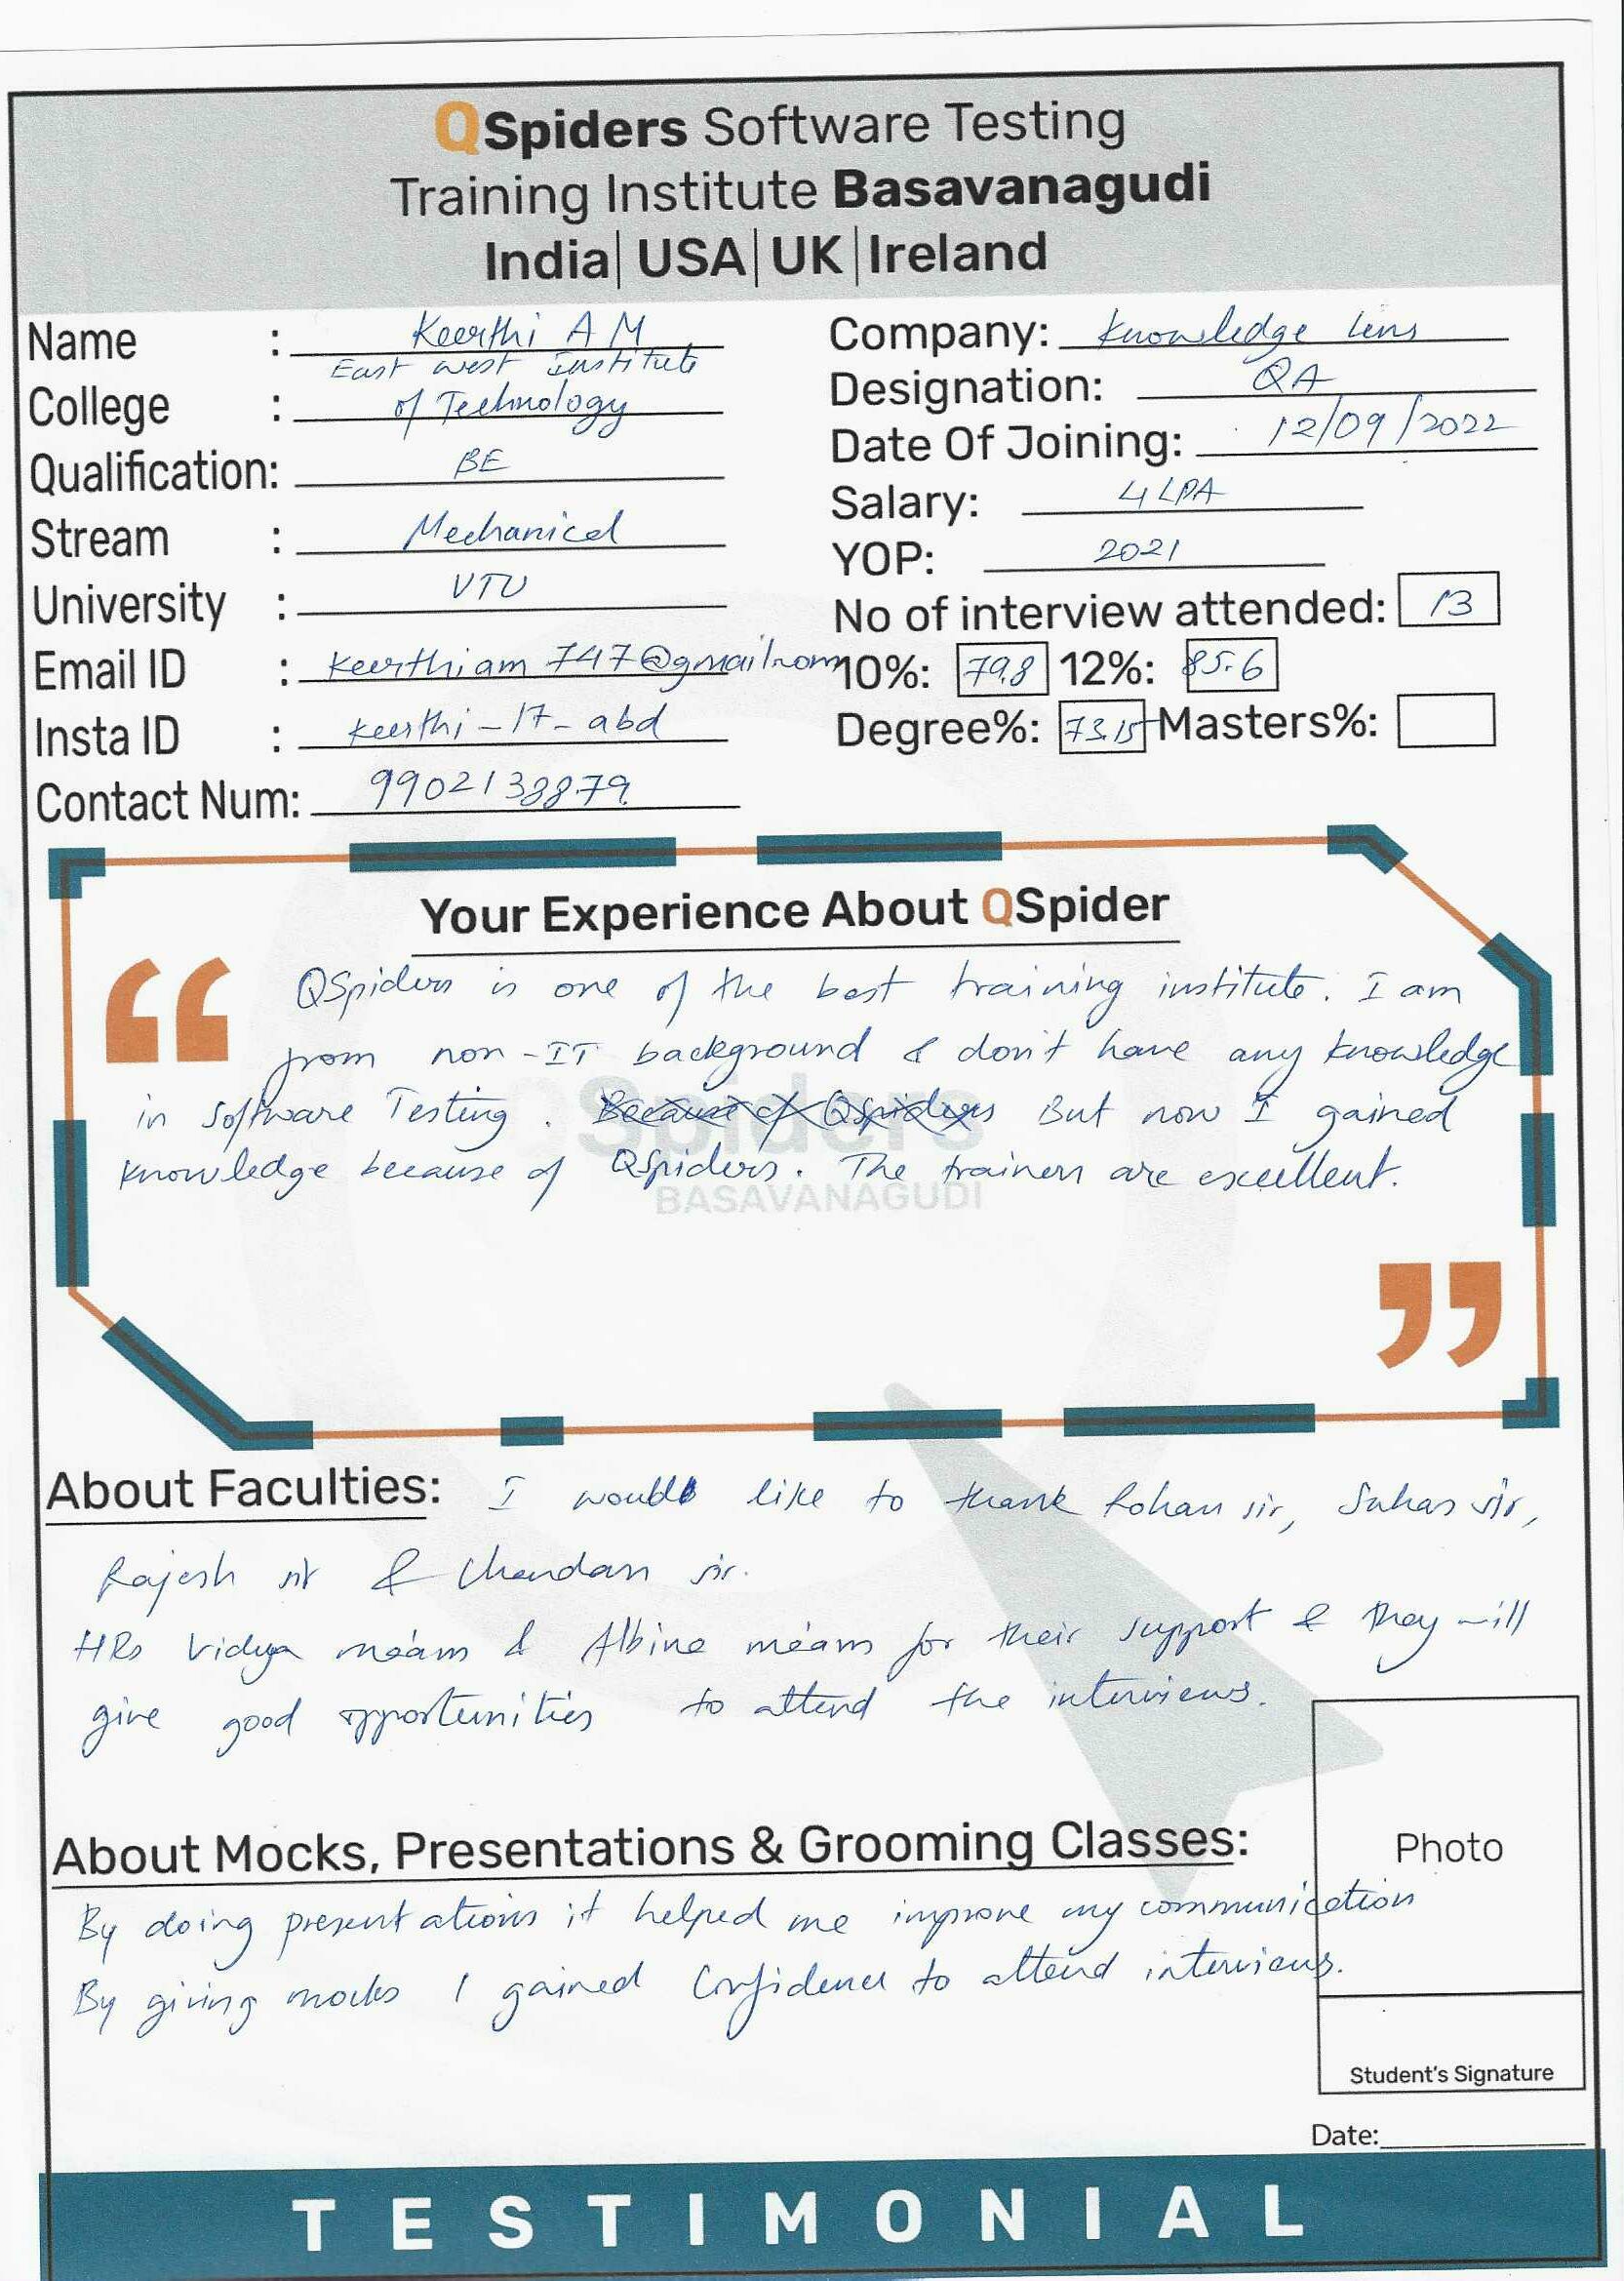 QSpiders Software Testing
Training Institute Basavanagudi
India| USA| UK |Ireland
Name : Keerthi A M
College : East west Institute
of Technology
Qualification: BE
Stream : Mechanical
University : VTU
Email ID : Keerthiam747@gmail.com
Insta ID : keerthi_17_abd
Contact Num: 9902138879
Company: Knowledge lens
Designation: QA
Date Of Joining: 12/09/2022
Salary: 4 LPA
YOP: 2021
No of interview attended: 13
10%: 79.8 12%: 85.6
Degree%: 73.15 Masters%:
Your Experience About QSpider
QSpiders is one of the best training institute. I am
from non-IT background & don't have any knowledge
in Software Testing. Because of QSpiders But now I gained
knowledge because of QSpiders. The trainers are excellent.
Spiders
BASAVANAGUDI
About Faculties: I would like to thank Rohan sir, Suhas sir,
Rajesh sir & Chandan sir.
HRs Vidya ma'am & Albina ma'am for their support & they will
give good opportunities to attend the interviews.
About Mocks, Presentations & Grooming Classes:
By doing presentations it helped me improve my communication
By giving mocks I gained Confidence to attend interviews.
Photo
Student's Signature
Date:
TESTIMONIAL